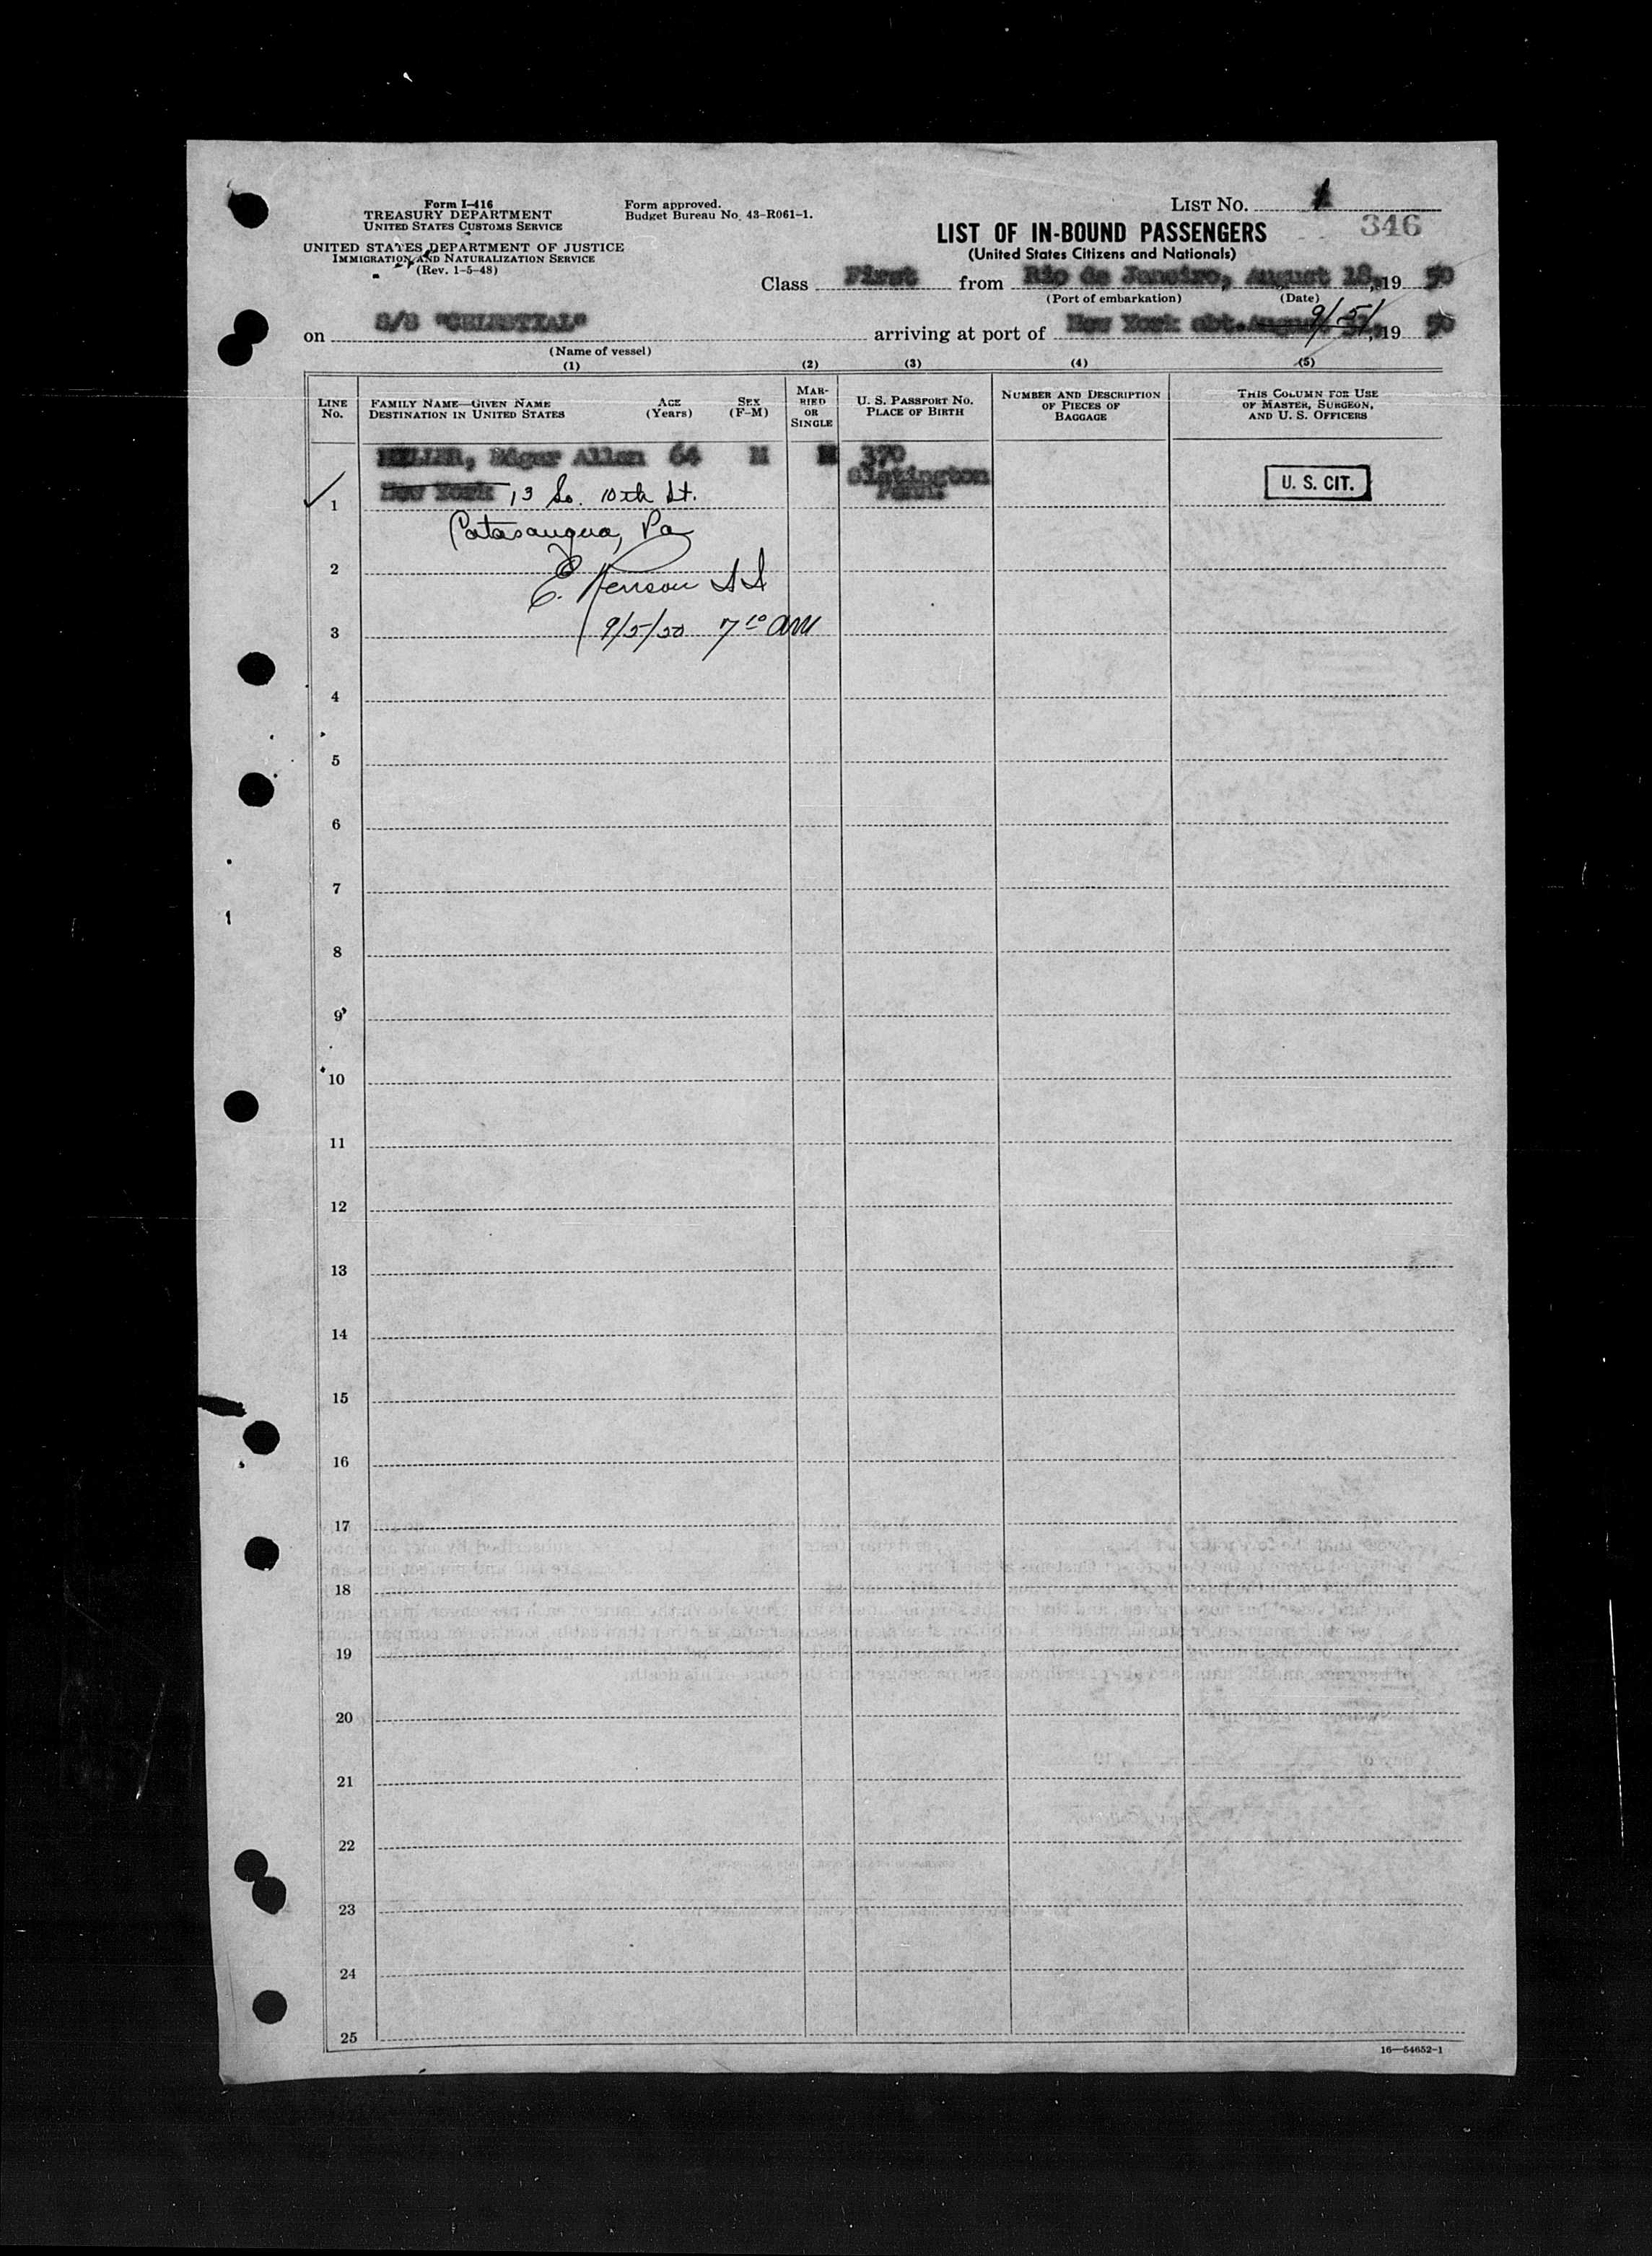 Form I-416
TREASURY DEPARTMENT
UNITED STATES CUSTOMS SERVICE
UNITED STATES DEPARTMENT OF JUSTICE
IMMIGRATION AND NATURALIZATION SERVICE
(Rev. 1-5-48)
Form approved.
Budget Bureau No. 43-R061-1.
LIST NO. 1
346
LIST OF IN-BOUND PASSENGERS
(United States Citizens and Nationals)
Class First from Rio de Janeiro, August 18, 19 50
(Port of embarkation) (Date)
on S/S "CELESTIAL" arriving at port of New York abt. August 31, 19 50
9/5/
(Name of vessel)
(1) (2) (3) (4) (5)
LINE NO.
FAMILY NAME—GIVEN NAME
DESTINATION IN UNITED STATES
AGE (Years)
SEX (F-M)
MARRIED OR SINGLE
U. S. PASSPORT NO.
PLACE OF BIRTH
NUMBER AND DESCRIPTION OF PIECES OF BAGGAGE
THIS COLUMN FOR USE OF MASTER, SURGEON, AND U. S. OFFICERS
Edgar Allen 64 M M 370
Slatington
Penn.
1 New York 13 So. 10th St.
U. S. CIT.
Catasauqua, Pa
2
E.
3 9/5/50 7 10 AM
4
5
6
7
8
9
10
11
12
13
14
15
16
17
18
19
20
21
22
23
24
25
16—54652-1